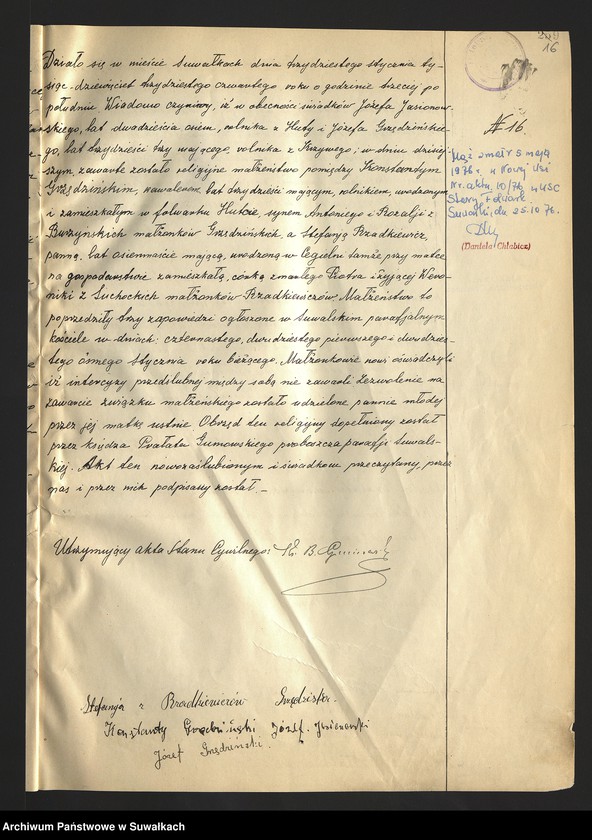 Działo się w mieście Suwałkach dnia trzydziestego stycznia ty-
siąc dziewięćset trzydziestego czwartego roku o godzinie trzeciej po
południu Wiadomo czynimy, iż w obecności świadków Józefa Jasionow-
skiego, lat dwadzieścia osiem, rolnika z Huty i Józefa Grzędzińskie-
go, lat trzydzieści trzy mającego, rolnika z Krzywego; w dniu dzisiej-
szym zawarte zostało religijne małżeństwo pomiędzy Konstantym
Grzędzińskim, kawalerem, lat trzydzieści mającym, rolnikiem, urodzonym
i zamieszkałym w folwarku Hucie, synem Antoniego i Rozalji z
Burzyńskich małżonków Grzędzińskich, a Stefanją Rzadkiewicz,
panną, lat osiemnaście mającą, urodzoną w Cegielni tamże przy matce
na gospodarstwie zamieszkałą, córką zmarłego Piotra i żyjącej Wero-
niki z Suchockich małżonków Rzadkiewiczów Małżeństwo to
poprzedziły trzy zapowiedzi ogłoszone w suwalskim parafjalnym
kościele w dniach: czternastego, dwudziestego pierwszego i dwudzies-
tego ósmego stycznia roku bieżącego. Małżonkowie nowi oświadczyli
iż intercyzy przedślubnej między sobą nie zawarli Zezwolenie na
zawarcie związku małżeńskiego zostało udzielone pannie młodej
przez jej matkę ustnie Obrzęd ten religijny dopełniony został
przez księdza Prałata Gumowskiego proboszcza parafji suwals-
kiej. Akt ten nowozaślubionym i świadkom przeczytany, przez
nas i przez nich podpisany został.
Utrzymujący akta Stanu Cywilnego: Ks. B.
Stefanja z Rzadkiewiczów
Konstanty Grzędziński Józef
Józef Grzędziński
16
№ 16.
Mąż zmarł 5 maja
1976 r. w Nowej Wsi
Nr. aktu 10/76 w USC
Stary Folwark
Suwałki, dn. 25.10.76.
(Daniela Chlabicz)
Archiwum Państwowe w Suwałkach